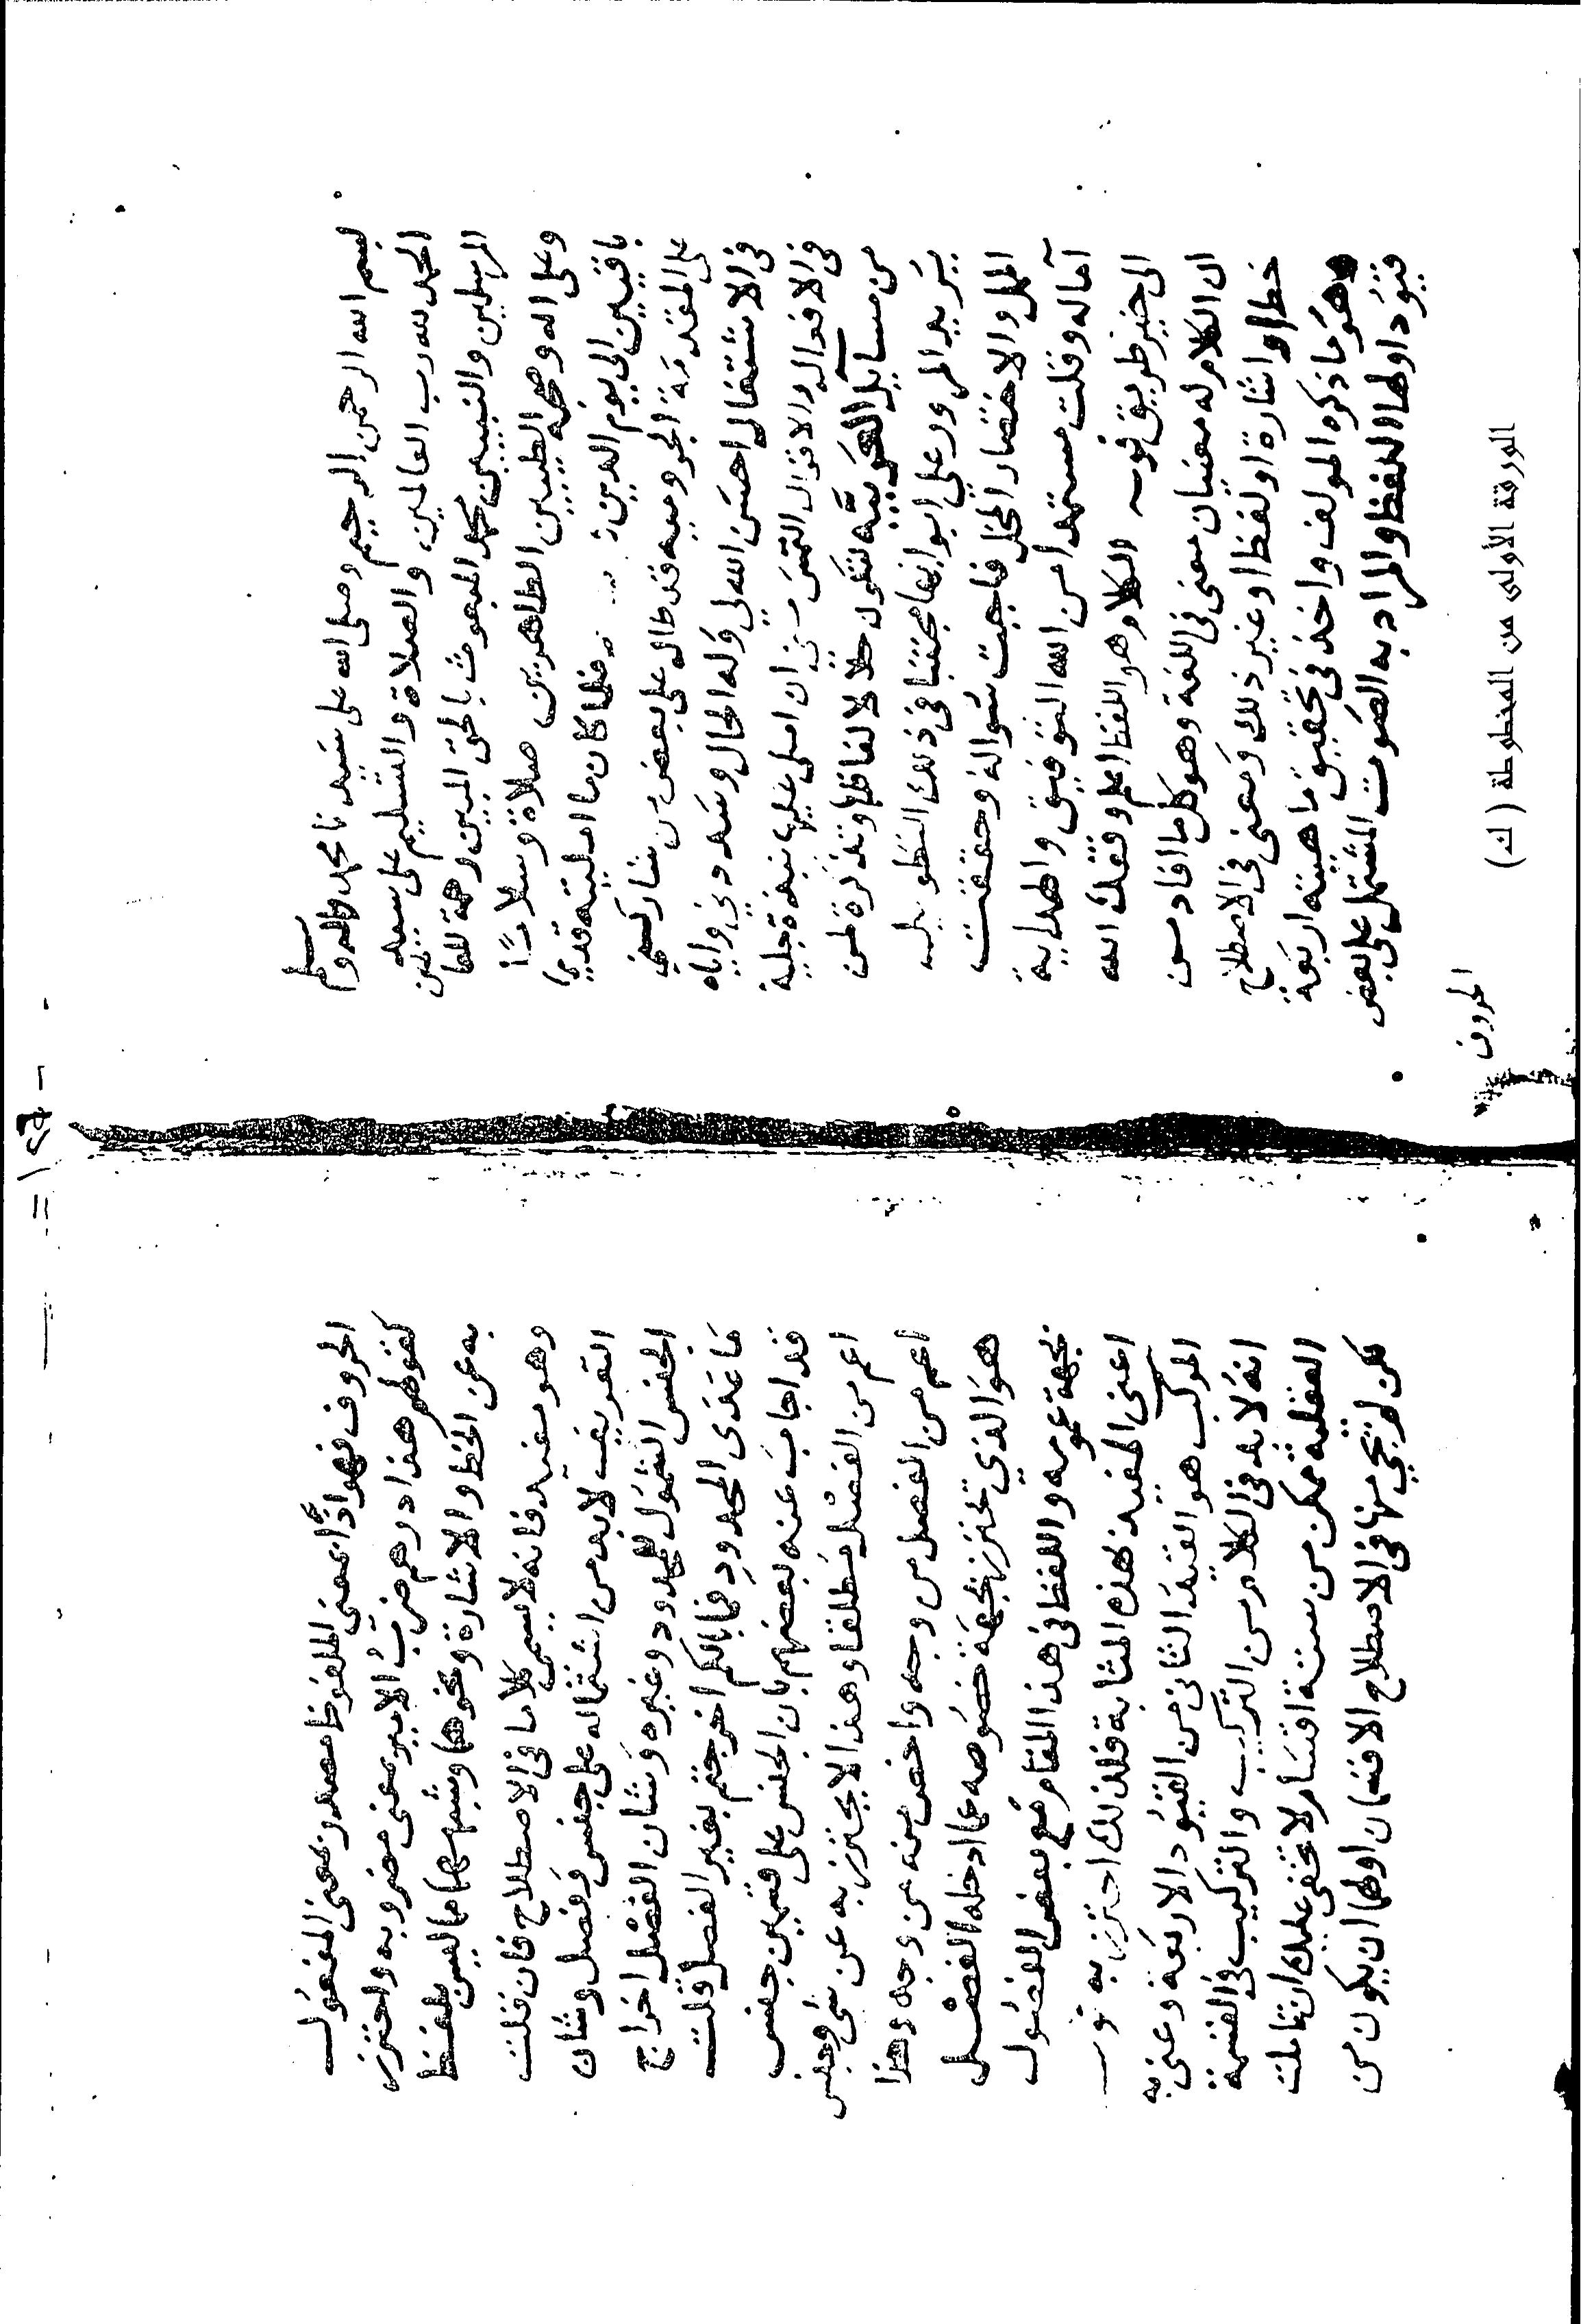 بسم الله الرحمن الرحيم وصلى الله على سيدنا محمد واله وسلم
الحمد لله رب العالمين، والصلاة والتسليم على سيد
المرسلين والنبيين محمد المبعوث بالحق المبين رحمة للعالمين
وعلى اله وصحبه الطيبين الطاهرين صلاة وسلامًا
باقيين الى يوم الدين فلما كان ما امليته قديما
على المقدمة الجروميه قد طال على بعض من شاركني
في الاشتغال احسن الله لي وله الحال وسددني واياه
في الافعال والاقوال التمس مني ان املي عليها نبذة جلية
من مسايل العربيَّه لتكون حلا لالفاظها وتذكرة لمن
يريد المرور على ابوابها مجتنبا في ذلك التطويل
الممل والاختصار المخل فاجبت سواله وحققت
آماله وقلت مستمدا من الله التوفيق والهداية
الى خير طريق قوله الكلام هو اللفظ اعلم وفقك الله
ان الكلام له معنيان معنى في اللغة وهو كل ما افاد من
خط او اشارة او لفظ او غير ذلك ومعنى في الاصطلاح
وهو ما ذكره المولف واخذ في تحقيق ماهيته اربعة
قيود اولها اللفظ والمراد به الصوت المشتمل على بعض
الحروف
الورقة الأولى من المخطوطة (ك)
الحروف فهو اذًا بمعنى الملفوظ مصدر بمعنى المفعول
كقولهم هذا درهم ضربُ الامير بمعنى مضروبه واحترز
به عن الخط والاشارة ونحوهما وشبههما مما ليس بلفظ
وهو مفيد فانه لا يسمى كلاما في الاصطلاح فان قلت
التعريف لابد من اشتماله على جنس وفصل وشان
الجنس الشمول للمحدود وغيره وشان الفصل اخراج
ما عدى المحدود فما بالكم اخرجتم بغير الفصل قلت
قد اجاب عنه بعضهم بان الجنس على قسمين جنس
اعم من الفصل مطلقا وهذا لا يحترز به عن شي وجنس
اعم من الفصل من وجه واخص منه من وجه وهذا
هو الذي تحترز بجهة خصوصه عما ادخله الفصل
بجهة عمومه واللفظ في هذا المقام مع بعض الفصول
اعنى المفيد بهذه المثابة فلذلك احترز به قوله
المركب هو القيد الثاني من القيود الاربعة وعنى به
انه لا بد في الكلام من التركيب والتركيب في القسمة
العقلية ممكن من ستة اقسام لا تخفى عليك ان تاملت
لكن لم تجي منها في الاصطلاح الا قسمان اولهما ان يكون من